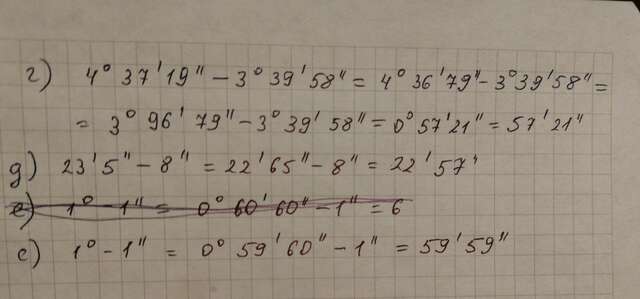 г) 4° 37' 19" - 3° 39' 58" = 4° 36' 79" - 3° 39' 58" =
= 3° 96' 79" - 3° 39' 58" = 0° 57' 21" = 57' 21"
д) 23' 5" - 8" = 22' 65" - 8" = 22' 57"
е) 1° - 1" = 0° 60' 60" - 1" = 6
е) 1° - 1" = 0° 59' 60" - 1" = 59' 59"